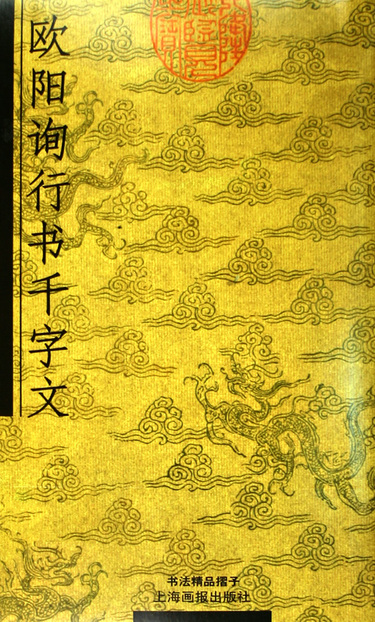 欧阳询行书千字文
书法精品摺子
上海画报出版社